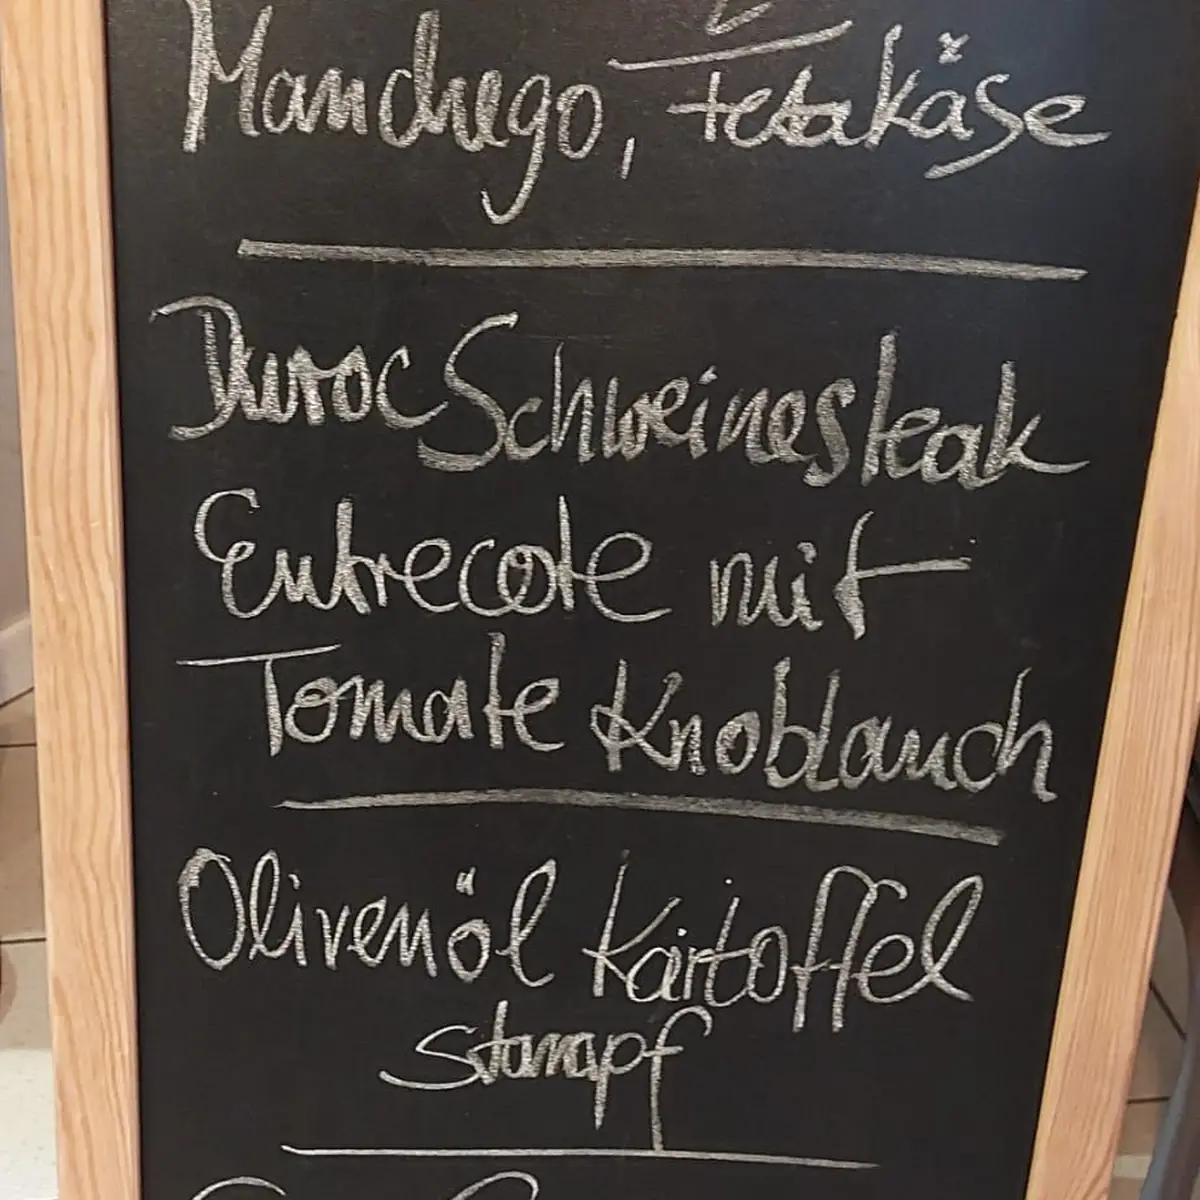 Manchego, fetakäse
Duroc Schweinesteak
Entrecote mit
Tomate Knoblauch
Olivenöl Kartoffel
stampf